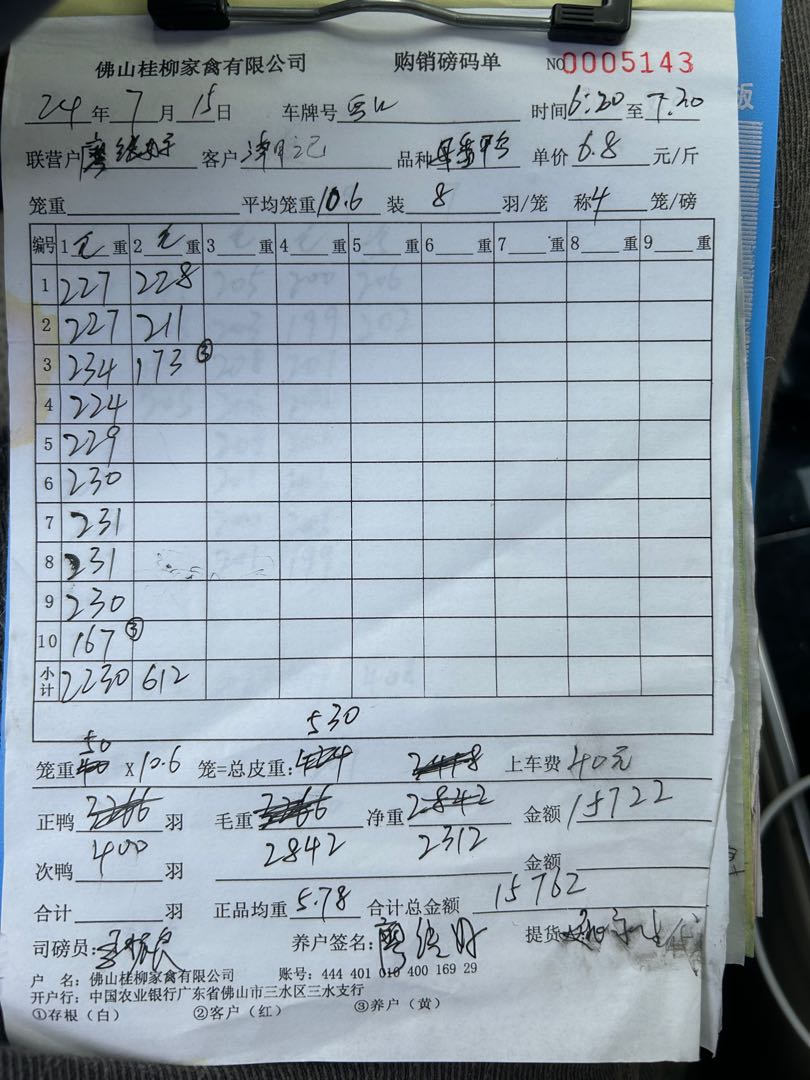 佛山桂柳家禽有限公司 购销磅码单 NO 0005143
24 年 7 月 15 日 车牌号 时间 6:20 至 7:20
联营户 廖 客户 品种 单价 6.8 元/斤
笼重 平均笼重 10.6 装 8 羽/笼 称 4 笼/磅
编号 1 毛 重 2 毛 重 3 重 4 重 5 重 6 重 7 重 8 重 9 重
1 227 228
2 227 211
3 234 173 ③
4 224
5 229
6 230
7 231
8 231
9 230
10 167 ③
小计 2230 612
530
50
笼重 X 10.6 笼=总皮重: 上车费 40元
正鸭 羽 毛重 净重 2842 金额 15722
400 2842 2312
次鸭 羽 金额
合计 羽 正品均重 5.78 合计总金额 15762
司磅员: 养户签名: 廖 提货
户 名: 佛山桂柳家禽有限公司 账号: 444 401 010 400 169 29
开户行: 中国农业银行广东省佛山市三水区三水支行
①存根(白) ②客户(红) ③养户(黄)